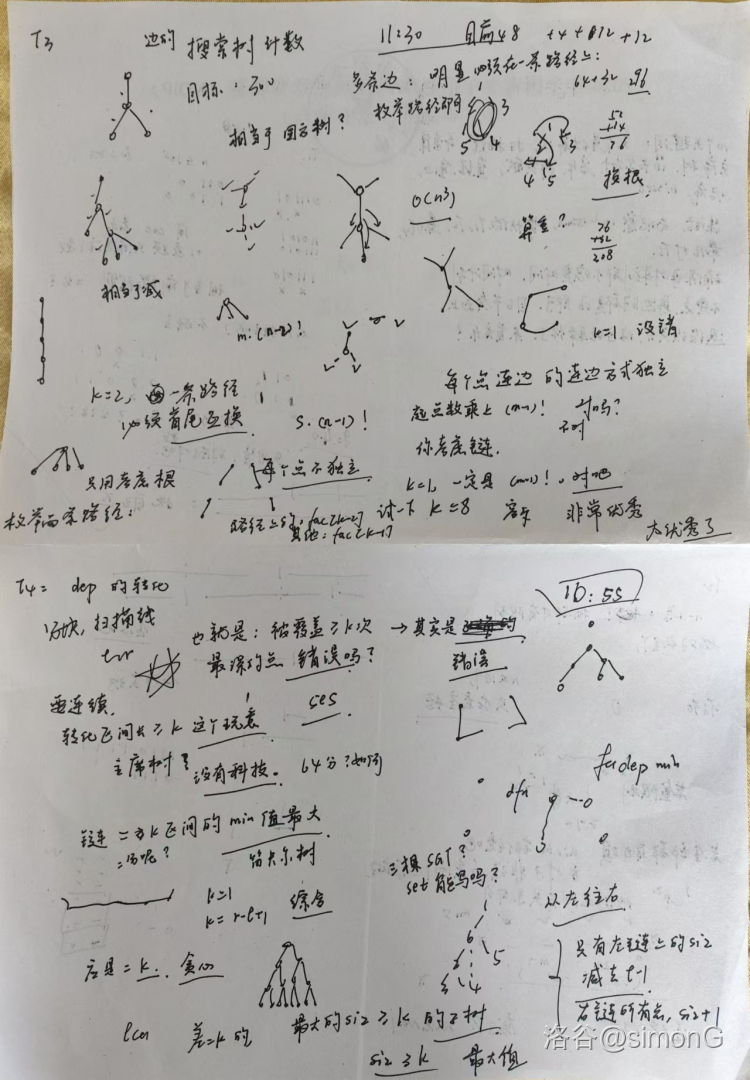 T3 边的 搜索树 计数 11:30 目前48 +4+812 +12
目标:300
多条边:明显必须在一条路径上:
64+32 296
枚举路径即可
相当于圆方树?
3
5 4
1
2 3
4 5
52
+14
76
换根
O(n³)
算重?
76
+52
208
相当于减
m·(n-2)!
k=1 没错
k=2, 由一条路径
必须首尾互换
S·(n-1)!
每个点连边的连边方式独立
起点数乘上(n-1)! 对吗?
不对
你考虑链.
只用考虑根
每个点不独立
k=1, 一定是(n-1)!.对吧
枚举两条路径:
路径上的: fac[k-2]
其他: fac[k-1]
试一下 k=8
非常优秀
太优秀了
T4= dep 的转化
10:55
分块, 扫描线
也就是: 被覆盖≥k次
最深的点 错误吗?
→其实是
错误
要连续.
转化区间长≥k 这个玩意
ses
主席树?
没有科技。 64分?如何
fa dep min
dfn
链 =为k区间的min值最大
=为呢?
笛卡尔树
三棵SGT?
set 能写吗?
k=1
k=r-l+1
综合
从左往右
1
6
2 5
3 4
只有左链上的siz
减去t-1
右链所有点, siz+1
应是=k. 贪心
lca 差=k的
最大的siz≥k的子树
siz≥k 最大值
洛谷@simonG